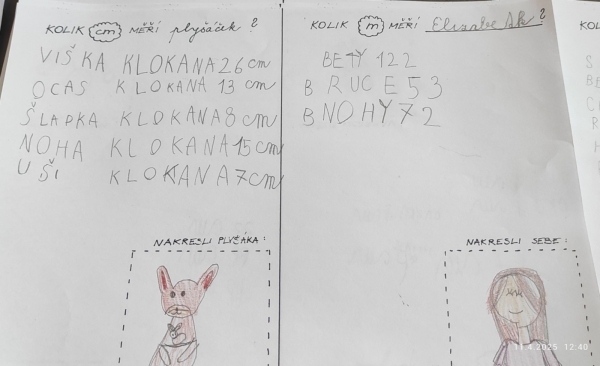 KOLIK cm MĚŘÍ plyšáček?
VIŠKA KLOKANA 26 cm
OCAS KLOKANA 13 cm
ŠLAPKA KLOKANA 8 cm
NOHA KLOKANA 15 cm
UŠI KLOKANA 7 cm
NAKRESLI PLYŠÁKA:
KOLIK m MĚŘÍ ?
BETY 122
B RUCE 53
B NOHY 72
NAKRESLI SEBE:
11.4.2025 12:40